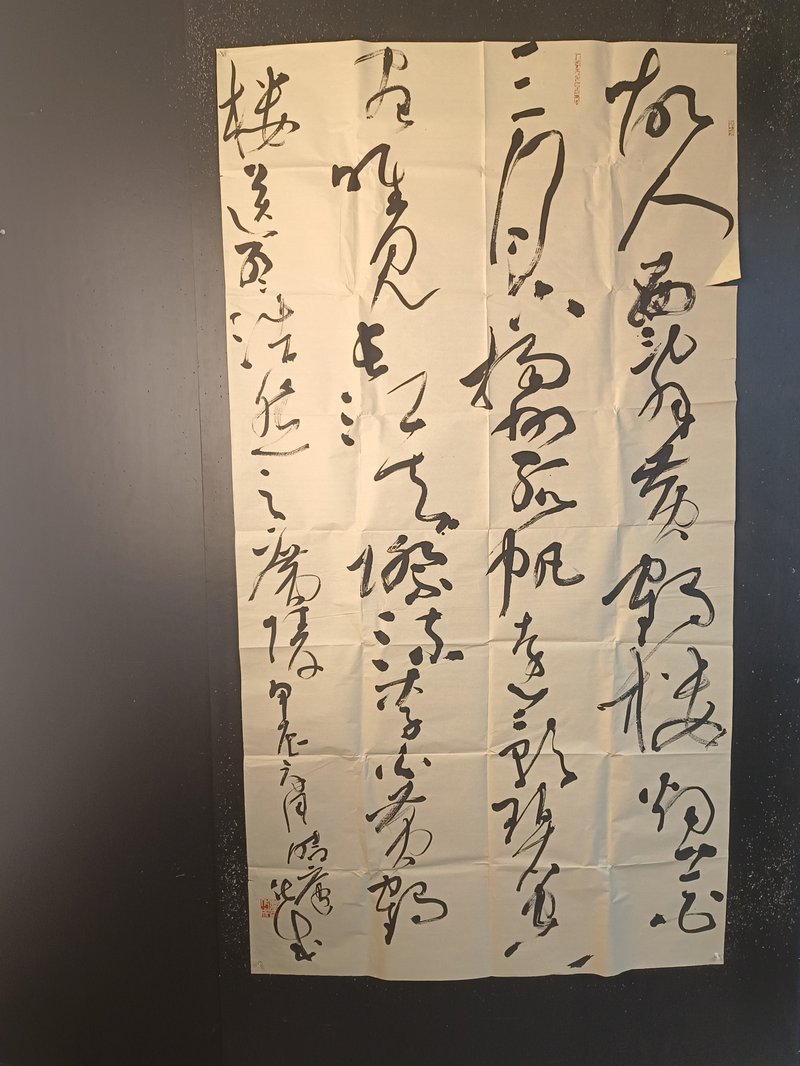 故人西辞黄鹤楼烟花
三月下扬州孤帆远影碧空
尽唯见长江天际流李白黄鹤
楼送孟浩然之广陵甲辰六月